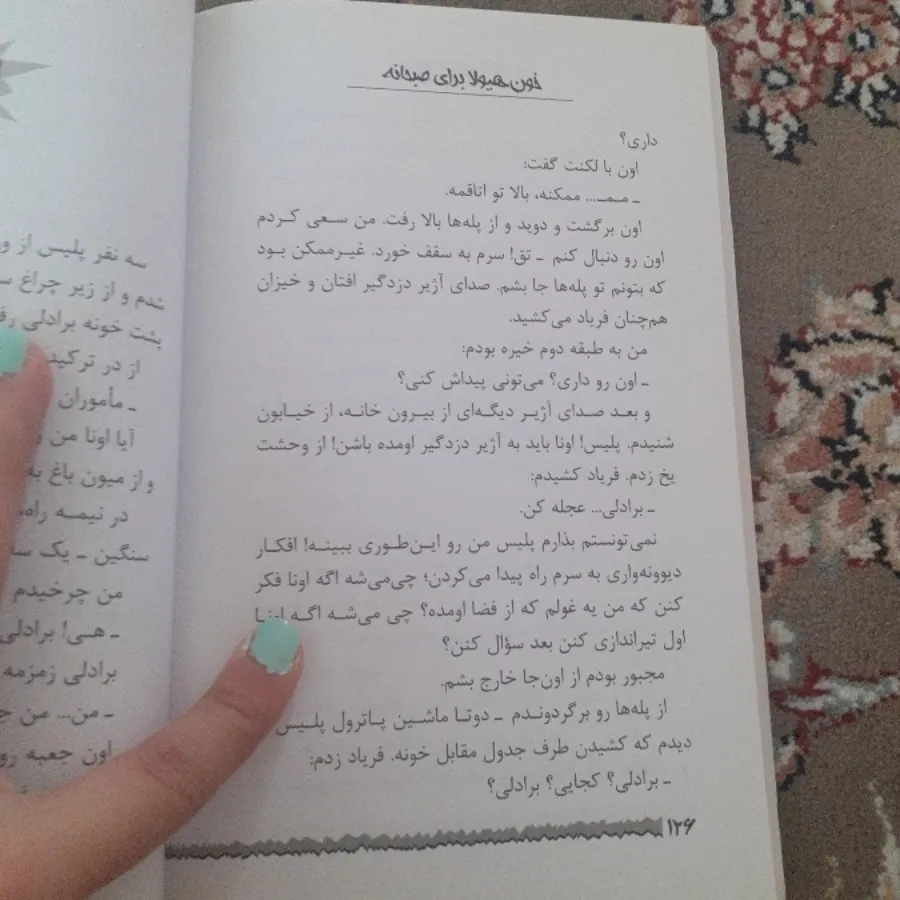 خون هیولا برای صبحانه
داری؟
اون با لکنت گفت:
ـ مـمـ... ممکنه، بالا تو اتاقمه.
اون برگشت و دوید و از پله‌ها بالا رفت. من سـعی کـردم
اون رو دنبال کنم ـ تق! سرم به سقف خورد. غیـرممکن بـود
که بتونم تو پله‌ها جا بشم. صدای آژیر دزدگیر افتان و خیزان
هم‌چنان فریاد می‌کشید.
من به طبقه دوم خیره بودم:
ـ اون رو داری؟ می‌تونی پیداش کنی؟
و بعد صدای آژیـر دیگـه‌ای از بیـرون خانـه، از خیـابون
شنیدم. پلیس! اونا باید به آژیر دزدگیر اومده باشن! از وحشت
یخ زدم. فریاد کشیدم:
ـ برادلی... عجله کن.
نمی‌تونستم بذارم پلیس من رو ایـن‌طوری ببینـه! افکـار
دیوونه‌واری به سرم راه پیدا می‌کردن؛ چی‌می‌شه اگه اونا فکر
کنن که من یه غولم که از فضا اومده؟ چی می‌شـه اگـه اونـا
اول تیراندازی کنن بعد سؤال کنن؟
مجبور بودم از اون‌جا خارج بشم.
از پله‌ها رو برگردونـدم ـ دوتـا ماشـین پـاترول پلـیس
دیدم که کشیدن طرف جدول مقابل خونه. فریاد زدم:
ـ برادلی؟ کجایی؟ برادلی؟
۱۲۶
سه نفر پلیس از
شدم و از زیر چراغ
پشت خونه برادلی
از در
ـ مأموران
آیا اونا من
و از میون باغ
در نیمـه راه،
سنگین ـ یک
من چرخیدم
ـ هـی! برادلی
برادلی زمزمه
ـ من... من
اون جعبه